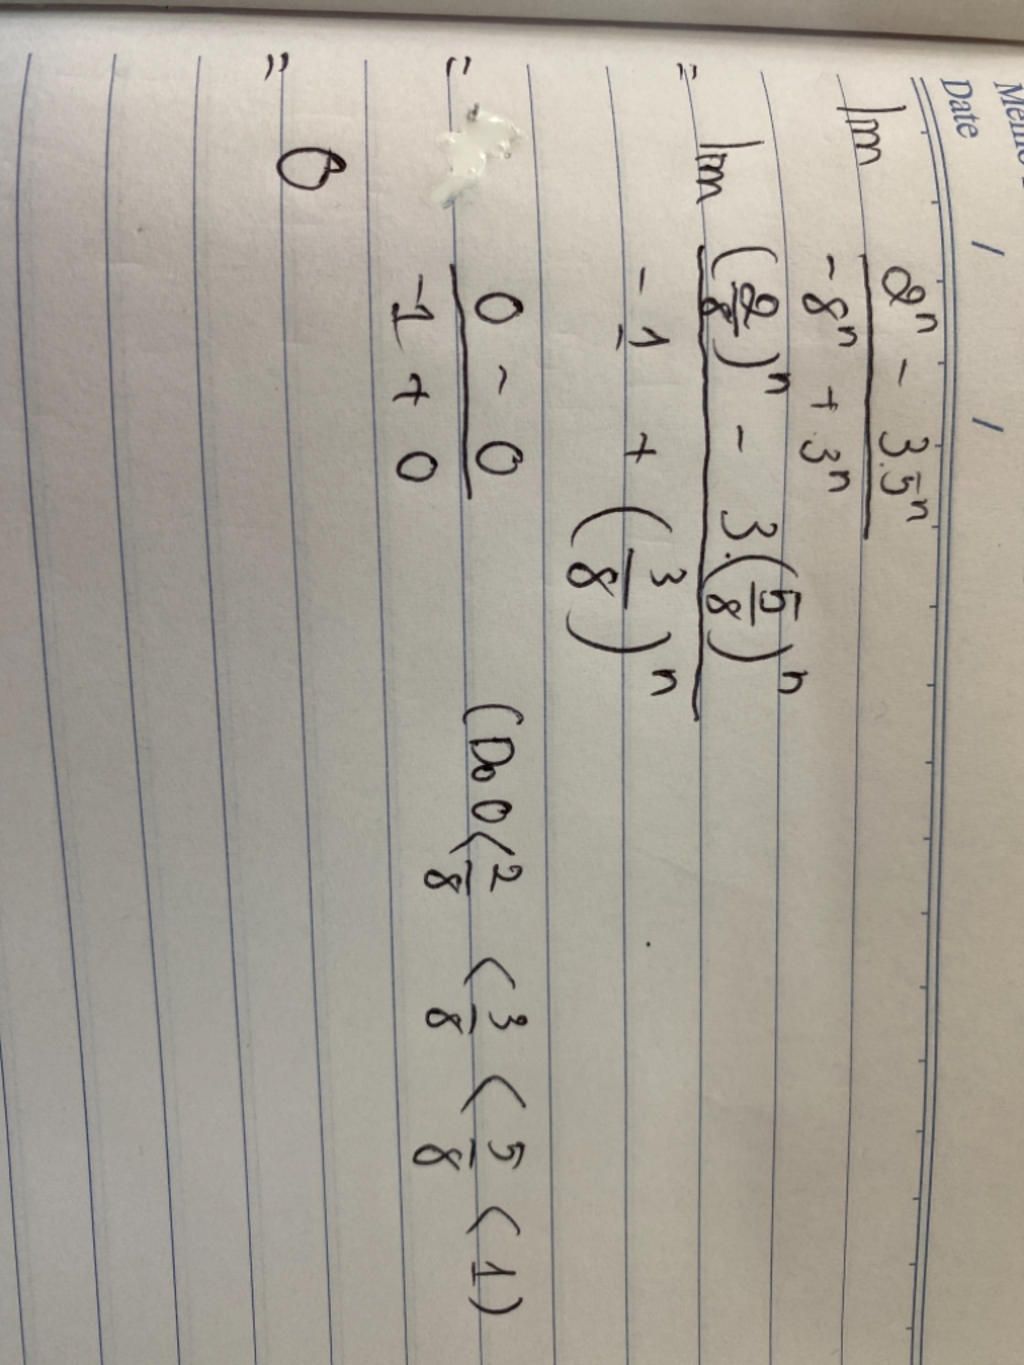 Date / /
lim (2ⁿ - 3.5ⁿ) / (-8ⁿ + 3ⁿ)
= lim ((2/8)ⁿ - 3.(5/8)ⁿ) / (-1 + (3/8)ⁿ)
= (0 - 0) / (-1 + 0) (Do 0 < 2/8 < 3/8 < 5/8 < 1)
= 0